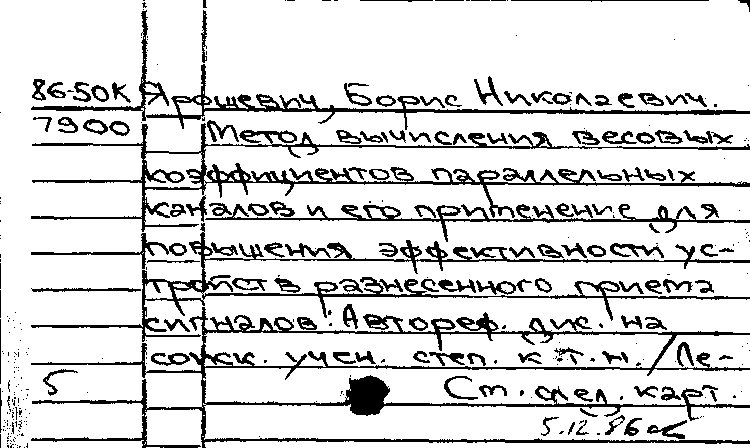 86-50К Ярошевич, Борис Николаевич.
7900 Метод вычисления весовых
коэффициентов параллельных
каналов и его применение для
повышения эффективности ус-
тройств разнесенного приема
сигналов: Автореф. дис. на
соиск. учен. степ. к.т.н. / Ле-
5 Ст. след. карт.
5.12.86